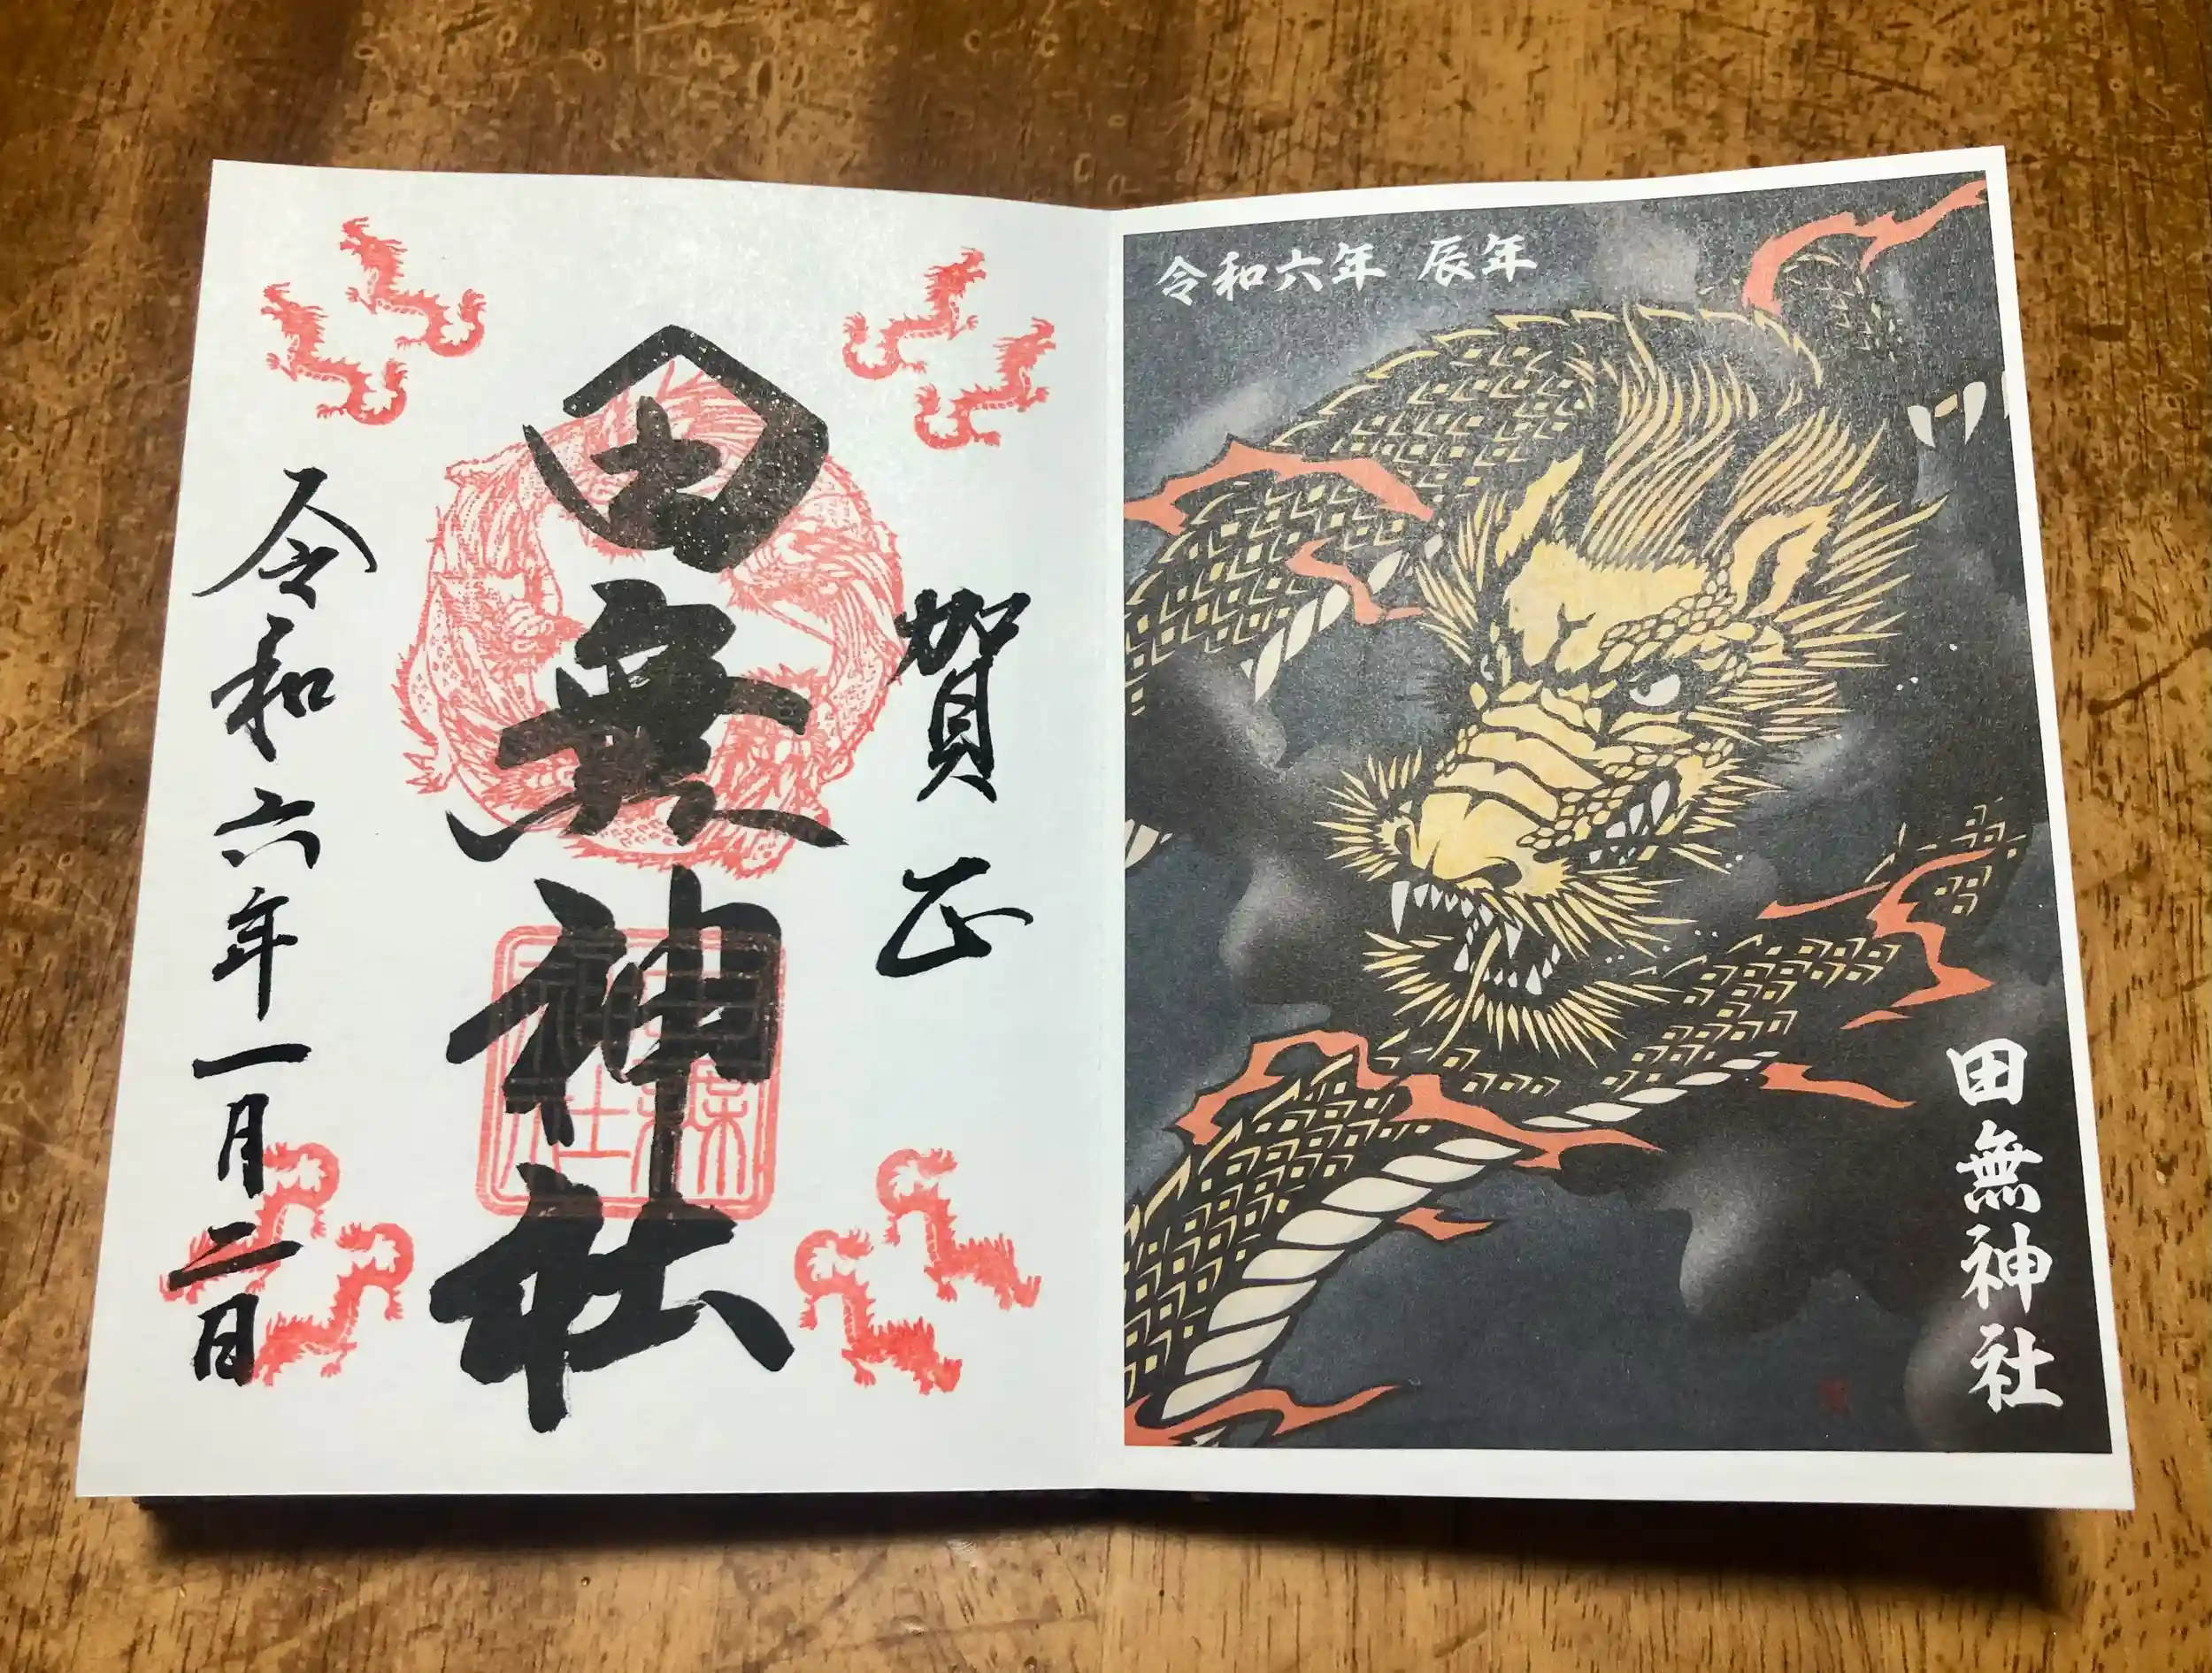 令和六年 辰年
田無神社
賀正
田無神社
令和六年一月二日